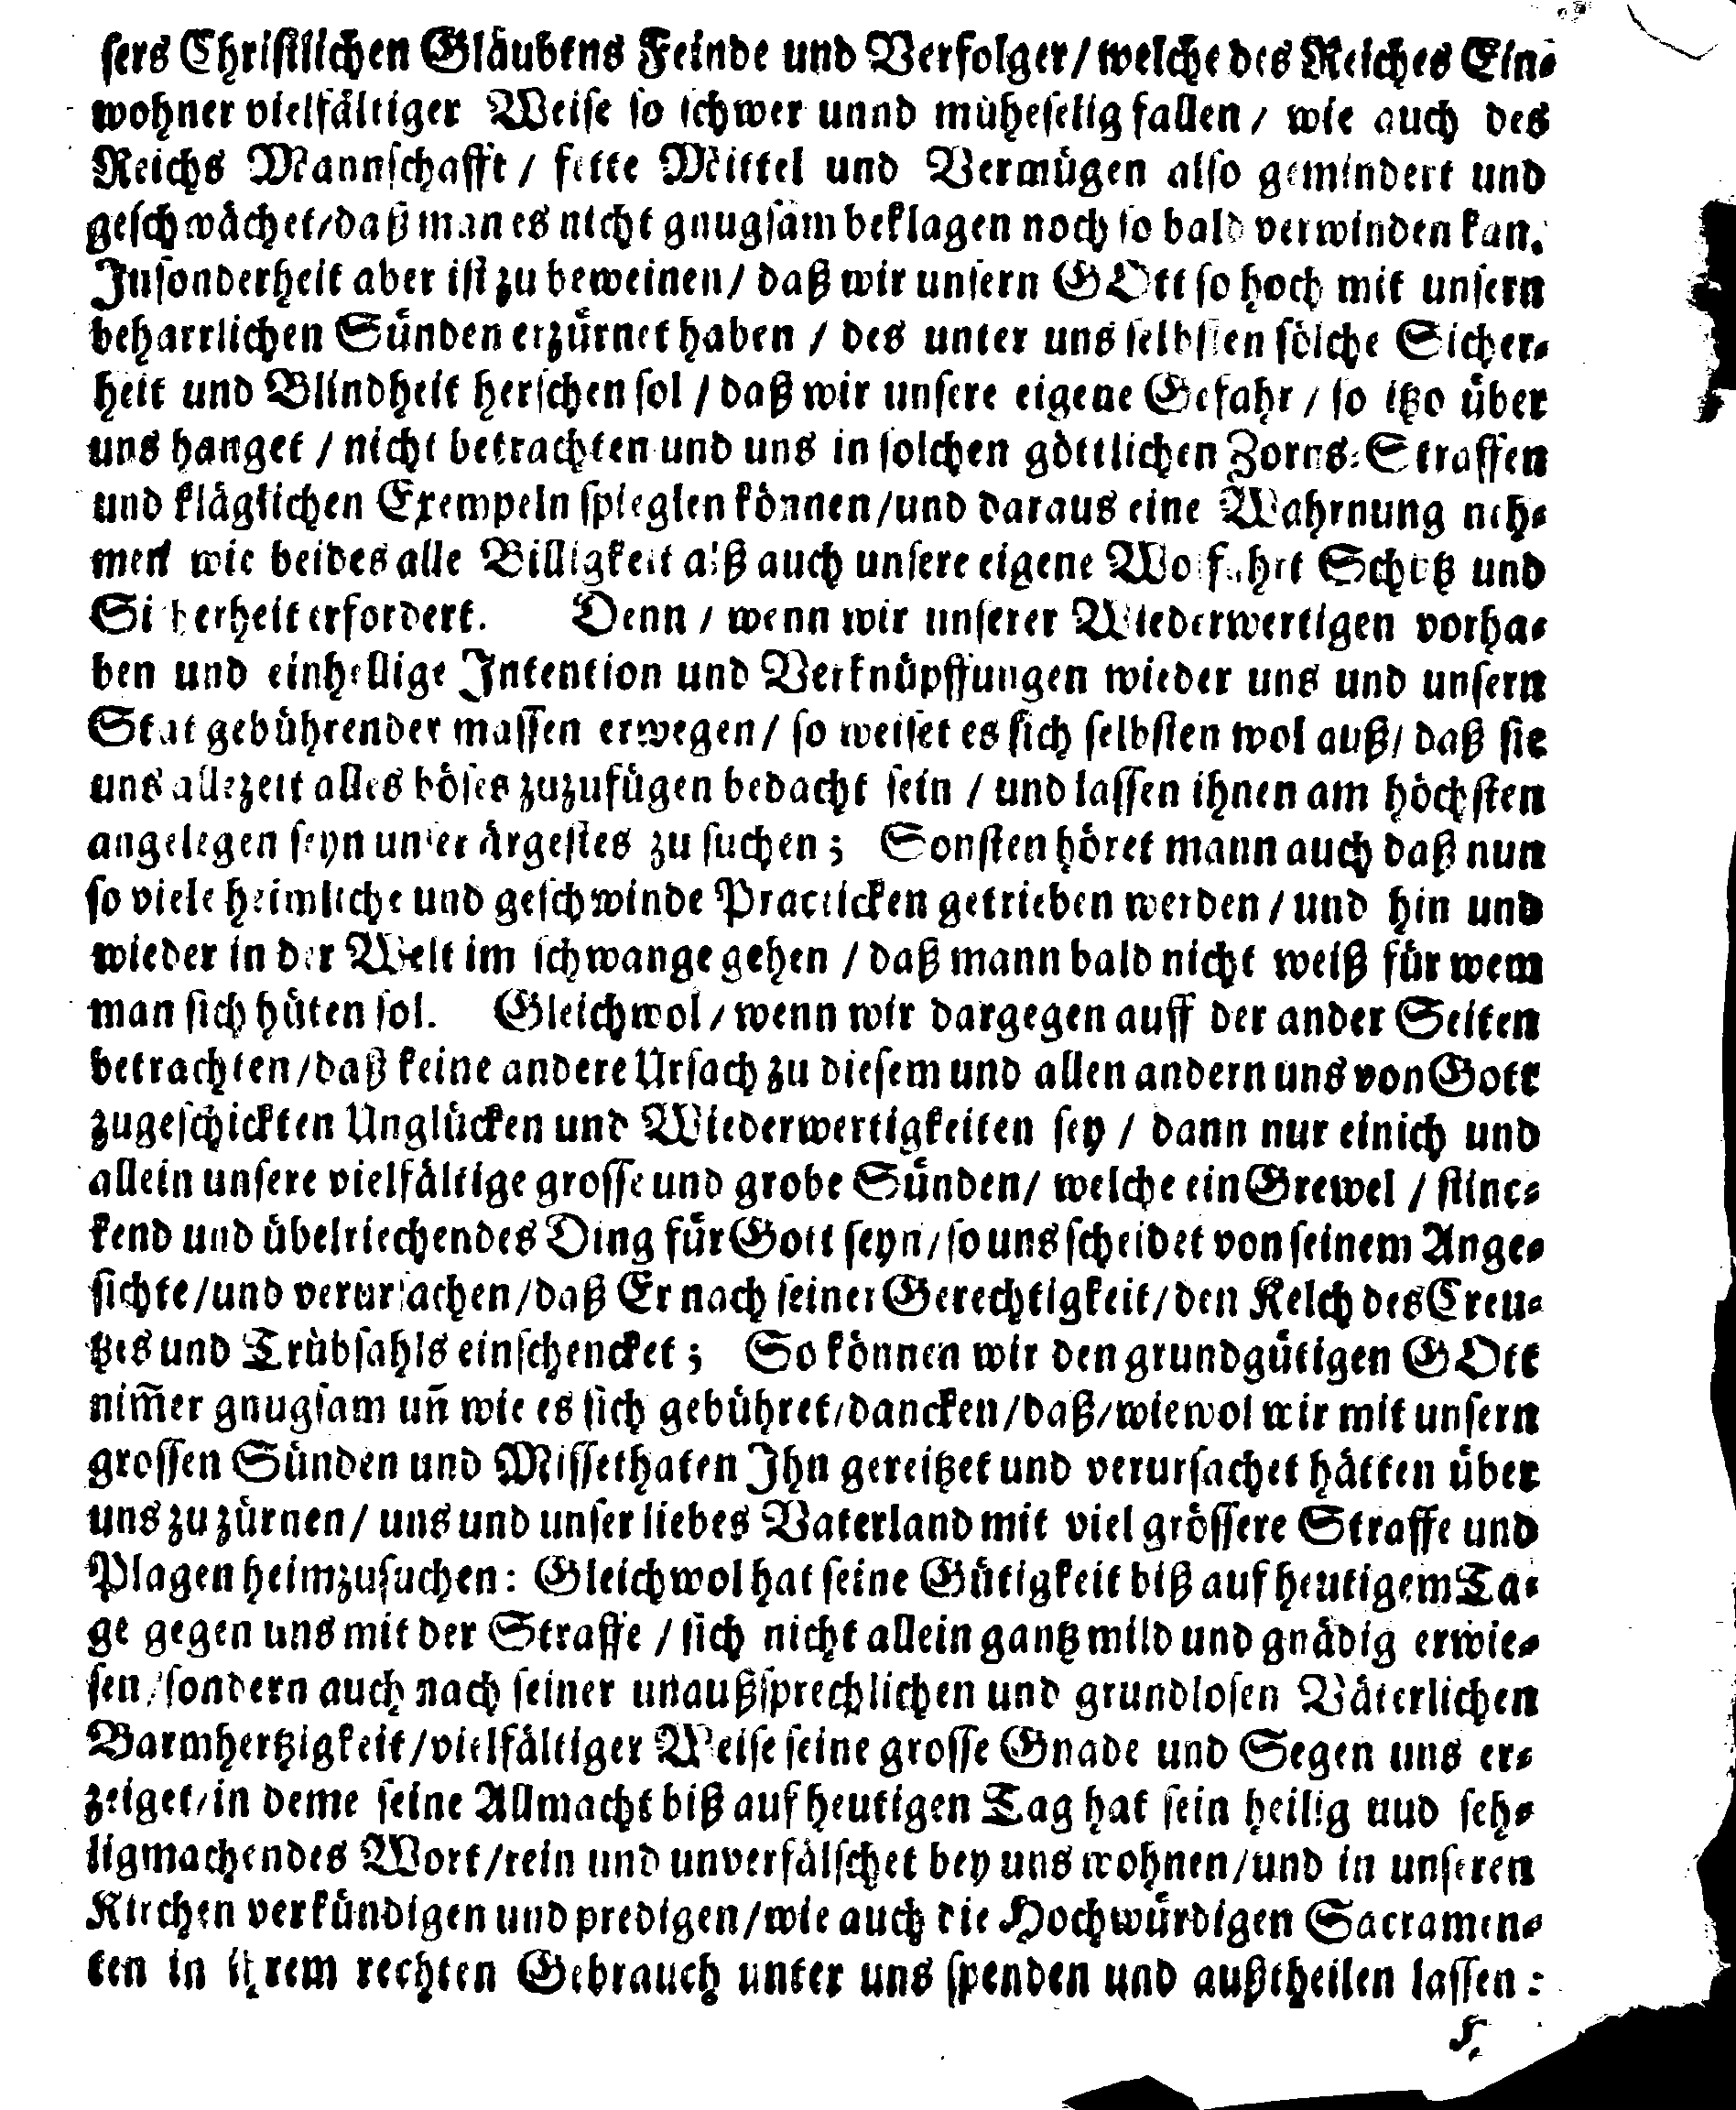 sers Christlichen Gläubens Feinde und Verfolger/ welche des Reiches Ein-
wohner vielfältiger Weise so schwer unnd müheselig fallen/ wie auch des
Reichs Mannschafft/ fette Mittel und Vermügen also gemindert und
geschwächet/ daß man es nicht gnugsam beklagen noch so bald verwinden kan.
Insonderheit aber ist zu beweinen/ daß wir unsern GOtt so hoch mit unsern
beharrlichen Sünden erzürnet haben/ des unter uns selbsten sölche Sicher-
heit und Blindheit herschen sol/ daß wir unsere eigene Gefahr/ so itzo über
uns hanget/ nicht betrachten und uns in solchen göttlichen Zorns-Straffen
und kläglichen Exempeln spieglen können/ und daraus eine Wahrnung neh-
men wie beides alle Billigkeit alß auch unsere eigene Wolfahrt Schutz und
Sicherheit erfordert. Denn/ wenn wir unserer Wiederwertigen vorha-
ben und einhellige Intention und Verknüpffungen wieder uns und unsern
Stat gebührender massen erwegen/ so weiset es sich selbsten wol auß/ daß sie
uns allezeit alles böses zuzufügen bedacht sein/ und lassen ihnen am höchsten
angelegen seyn unser ärgestes zu suchen; Sonsten höret mann auch daß nun
so viele heimliche und geschwinde Practicken getrieben werden/ und hin und
wieder in der Welt im schwange gehen/ daß mann bald nicht weiß für wem
man sich hüten sol. Gleichwol/ wenn wir dargegen auff der ander Seiten
betrachten/ daß keine andere Ursach zu diesem und allen andern uns von Gott
zugeschickten Unglücken und Wiederwertigkeiten sey/ dann nur einich und
allein unsere vielfältige grosse und grobe Sünden/ welche ein Grewel/ stinc-
kend und übelriechendes Ding für Gott seyn/ so uns scheidet von seinem Ange-
sichte/ und verursachen/ daß Er nach seiner Gerechtigkeit/ den Kelch des Creu-
tzes und Trübsahls einschencket; So können wir den grundgütigen GOtt
nim̃er gnugsam uñ wie es sich gebühret/ dancken/ daß/ wiewol wir mit unsern
grossen Sünden und Missethaten Ihn gereitzet und verursachet hätten über
uns zu zürnen/ uns und unser liebes Vaterland mit viel grössere Straffe und
Plagen heimzusuchen: Gleichwol hat seine Gütigkeit biß auf heutigem Ta-
ge gegen uns mit der Straffe/ sich nicht allein gantz mild und gnädig erwie-
sen/ sondern auch nach seiner unaußsprechlichen und grundlosen Väterlichen
Barmhertzigkeit/ vielfältiger Weise seine grosse Gnade und Segen uns er-
zeiget/ in deme seine Allmacht biß auf heutigen Tag hat sein heilig uud seh-
ligmachendes Wort/ rein und unverfälschet bey uns wohnen/ und in unseren
Kirchen verkündigen und predigen/ wie auch die Hochwürdigen Sacramen-
ten in ihrem rechten Gebrauch unter uns spenden und außtheilen lassen: